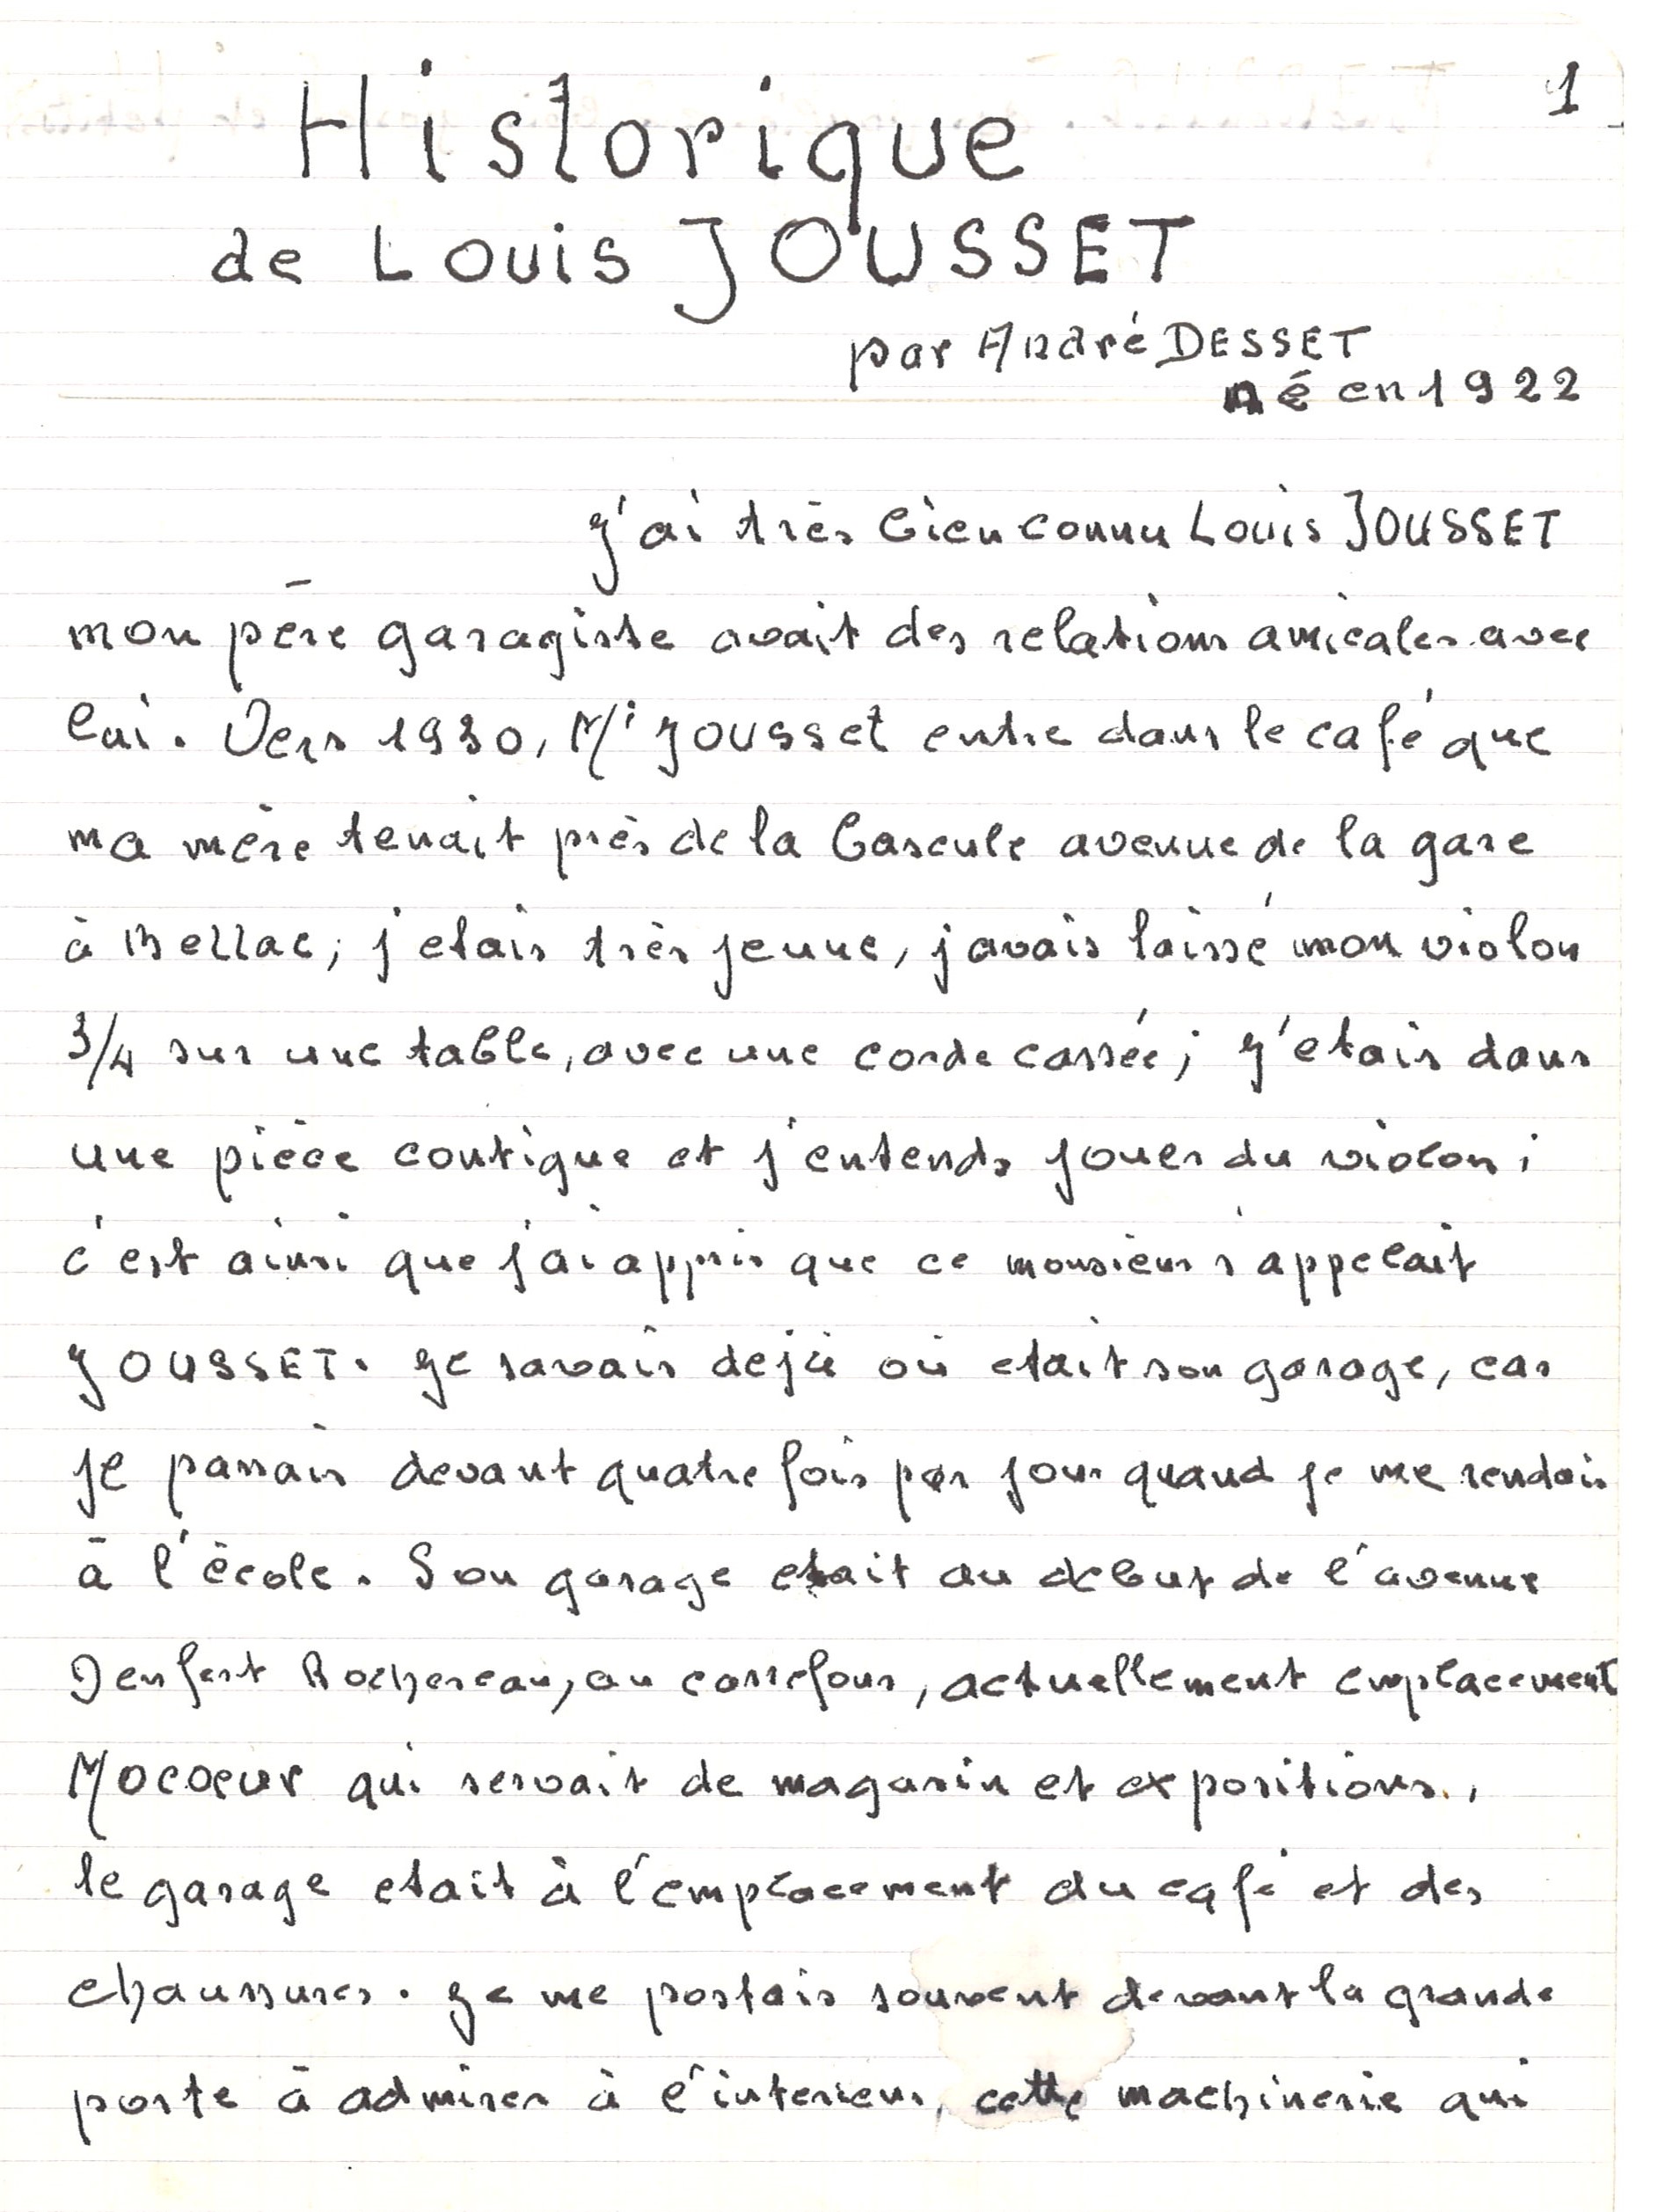 1
Historique
de Louis JOUSSET
par André DESSET
né en 1922
J'ai très bien connu Louis JOUSSET
mon père garagiste avait des relations amicales avec
lui. Vers 1930, Mr Jousset entre dans le café que
ma mère tenait près de la bascule avenue de la gare
à Bellac; j'etais très jeune, j'avais laissé mon violon
3/4 sur une table, avec une corde cassée; J'etais dans
une pièce contigue et j'entends jouer du violon;
c'est ainsi que j'ai appris que ce monsieur s'appelait
JOUSSET. Je savais dejà où etait son garage, car
je passais devant quatre fois par jour quand je me rendais
à l'école. Son garage etait au debut de l'avenue
Denfert Rochereau, au carrefour, actuellement emplacement
Mocoeur qui servait de magasin et expositions.,
le garage etait à l'emplacement du café et des
chaussures. Je me postais souvent devant la grande
porte à admirer à l'interieur, cette machinerie qui